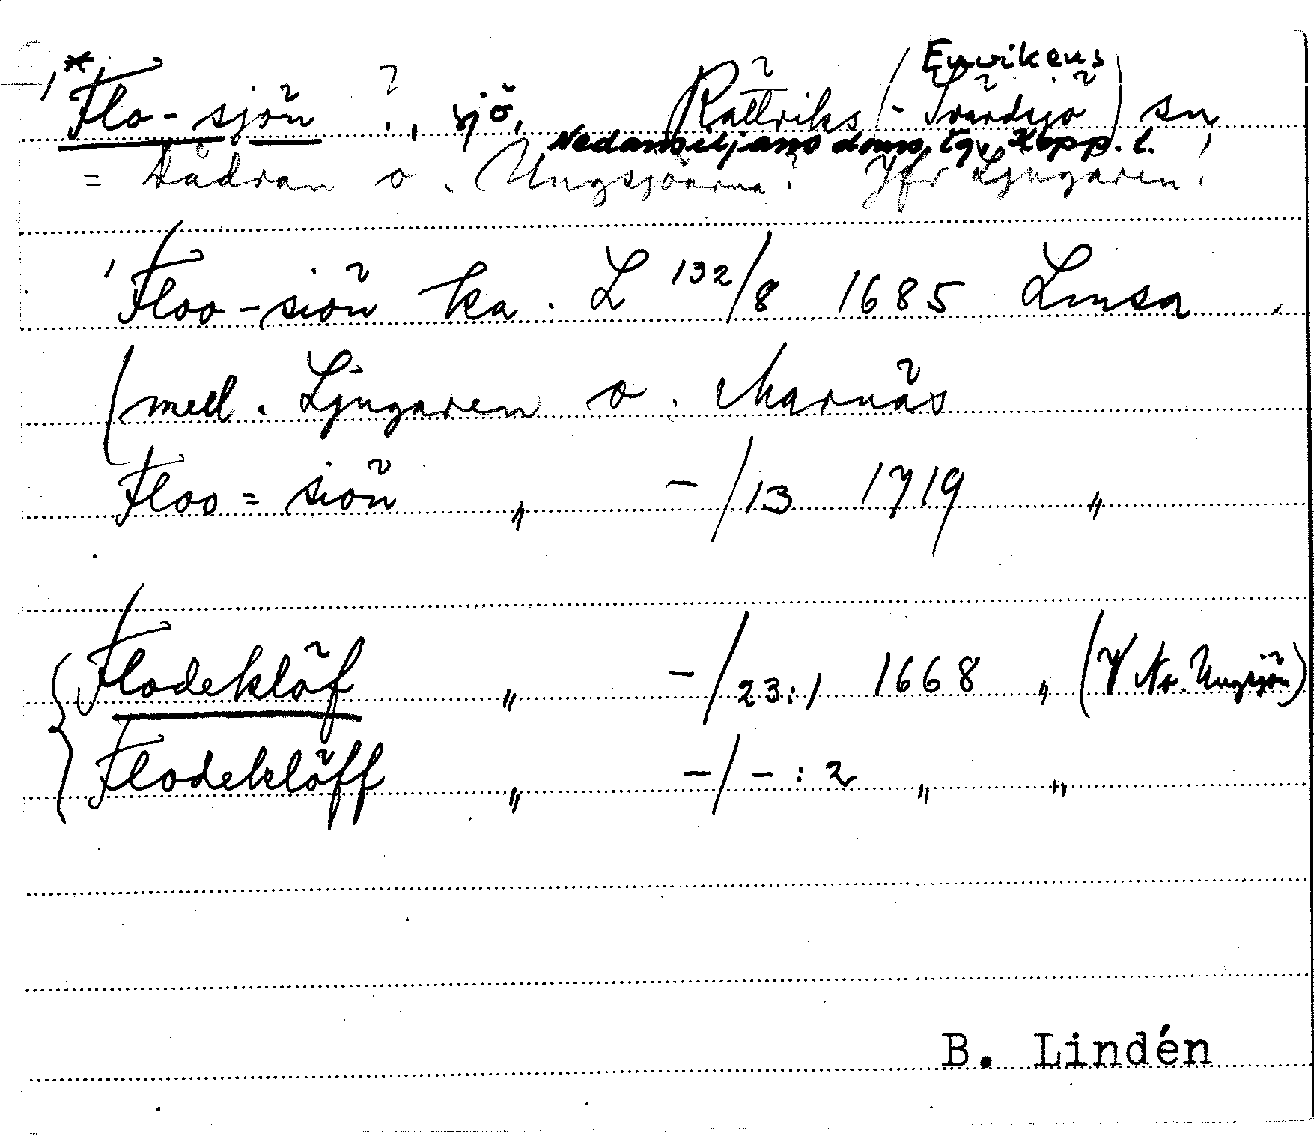 Enwikens
*Flo-sjön ?, sjö, Rättviks (-Svärdsjö) sn,
Nedansiljans doms. tg, Kopp. l.
= Dådran o. Ungsjöarna? Jfr Ljugaren!
Floo-siön ka. L 132/8 1685 Lmsa
(mell. Ljugaren o. Marnäs
Floo=siön " -/13 1719 "
Flodeklöf " -/23:1 1668 " (V Nr. Ungsjön)
Flodeklöff " -/-:2 " "
B. Lindén